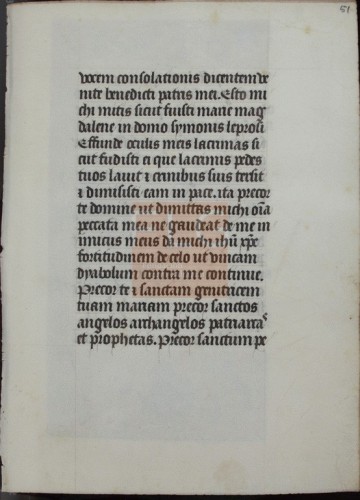 51
vocem consolationis dicentem ve
nite benedicti patris mei. Esto mi
chi mitis sicut fuisti marie mag
dalene in domo symonis leprosi
Effunde oculis meis lacrimas si
cut fudisti ei que lacrimis pedes
tuos lauit et crinibus suis tersit
⁊ dimisisti eam in pace. ita precor
te domine ut dimittas michi oīa
peccata mea ne gaudeat de me in
imicus meus da michi ihū xp̄e
fortitudinem de celo ut vincam
dyabolum contra me continue.
Precor te ⁊ sanctam genitricem
tuam mariam precor sanctos
angelos archangelos patriarcas
et prophetas. Precor sanctum pe